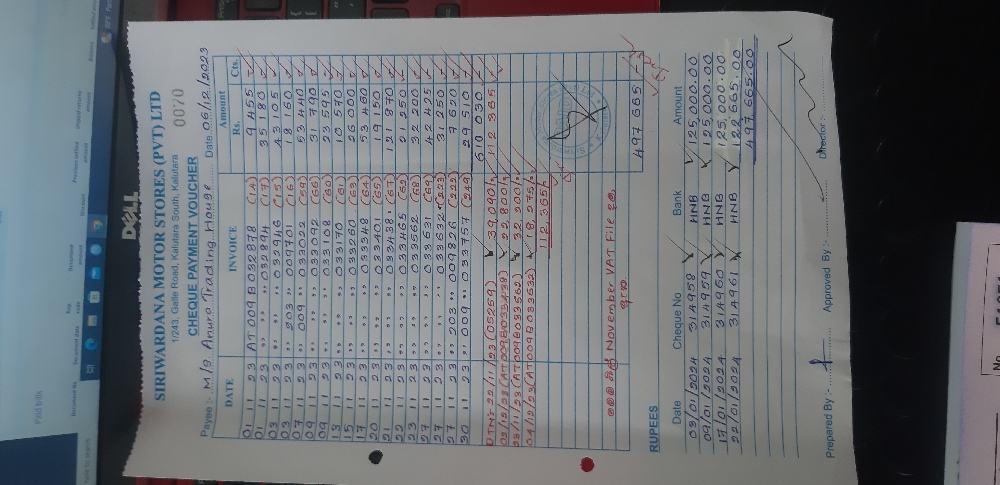 DELL
SIRIWARDANA MOTOR STORES (PVT) LTD
1/243, Galle Road, Kalutara South, Kalutara
CHEQUE PAYMENT VOUCHER 0070
Payee :- M/s Anura Trading House Date 06/12/2023
DATE INVOICE Amount
Rs. Cts.
01 11 23 AT 009 B 032878 (14) 9 455
01 11 23 " " 032894 (7) 35 580
03 11 23 " " 032946 (15) 43 105
03 11 23 " 203 " 009701 (16) 18 160
07 11 23 " 009 " 033022 (59) 53 440
09 11 23 " " " 033092 (66) 31 790
09 11 23 " " " 033108 (60) 23 595
13 11 23 " " " 033170 (61) 10 570
15 11 23 " " " 033260 (63) 56 200
17 11 23 " " " 033348 (64) 53 460
20 11 23 " " " 033401 (65) 19 150
21 11 23 " " " 033438 (67) 121 870
22 11 23 " " " 033465 (62) 21 250
23 11 23 " " " 033562 (68) 32 200
27 11 23 " " " 033631 (69) 42 425
27 11 23 " " " 033632 (223) 31 250
27 11 23 " 203 " 009826 (222) 7 620
30 11 23 " 009 " 033757 (249) 29 510
610 030
RTN: 22/11/23 (05259) 39,090/= 112 365
02/12/23 (AT009B033438) 22,800/=
02/12/23 (AT009B033562) 32,200/=
04/12/23 (AT009B033632) 18,275/=
112,365/=
November VAT File
497 665
RUPEES
Date Cheque No Bank Amount
03/01/2024 314958 HNB 125,000.00
09/01/2024 314959 HNB 125,000.00
17/01/2024 314960 HNB 125,000.00
22/01/2024 314961 HNB 122,665.00
497,665.00
Prepared By :- Approved By :- Director :-